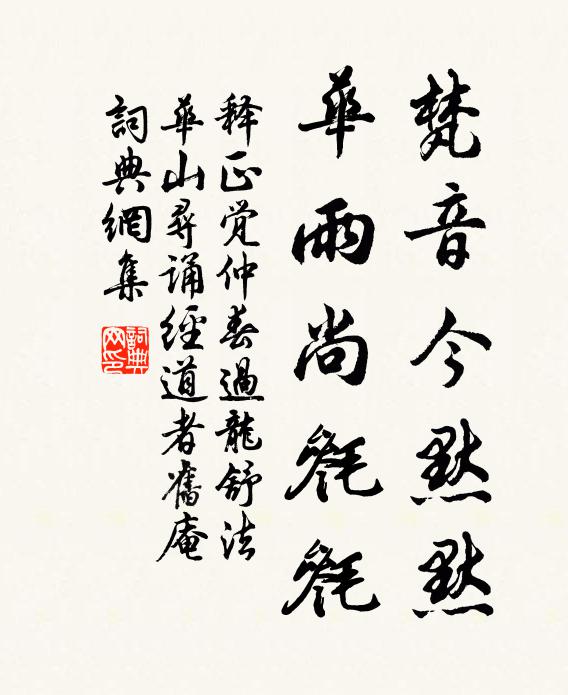 梵音今默默
華雨尚毿毿
释正觉仲春過龍舒法
華山尋誦經道者舊庵
詞典網集
詞典網印